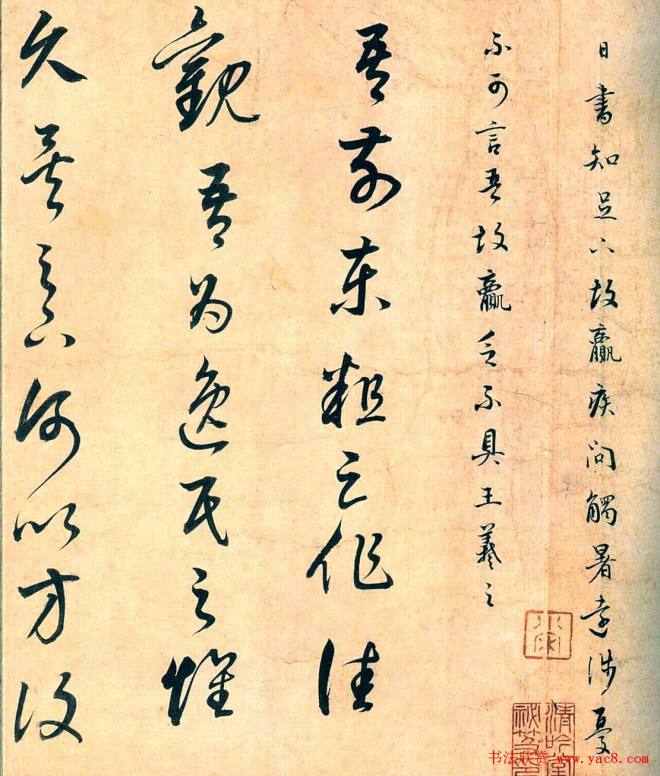 日書知足下故羸疾問觸暑遠涉憂
不可言吾故羸乏不具王羲之
吾前東粗足作佳
觀吾為逸民之懷
久矣足下何以方復
清吟堂
书法欣赏 www.yac8.com